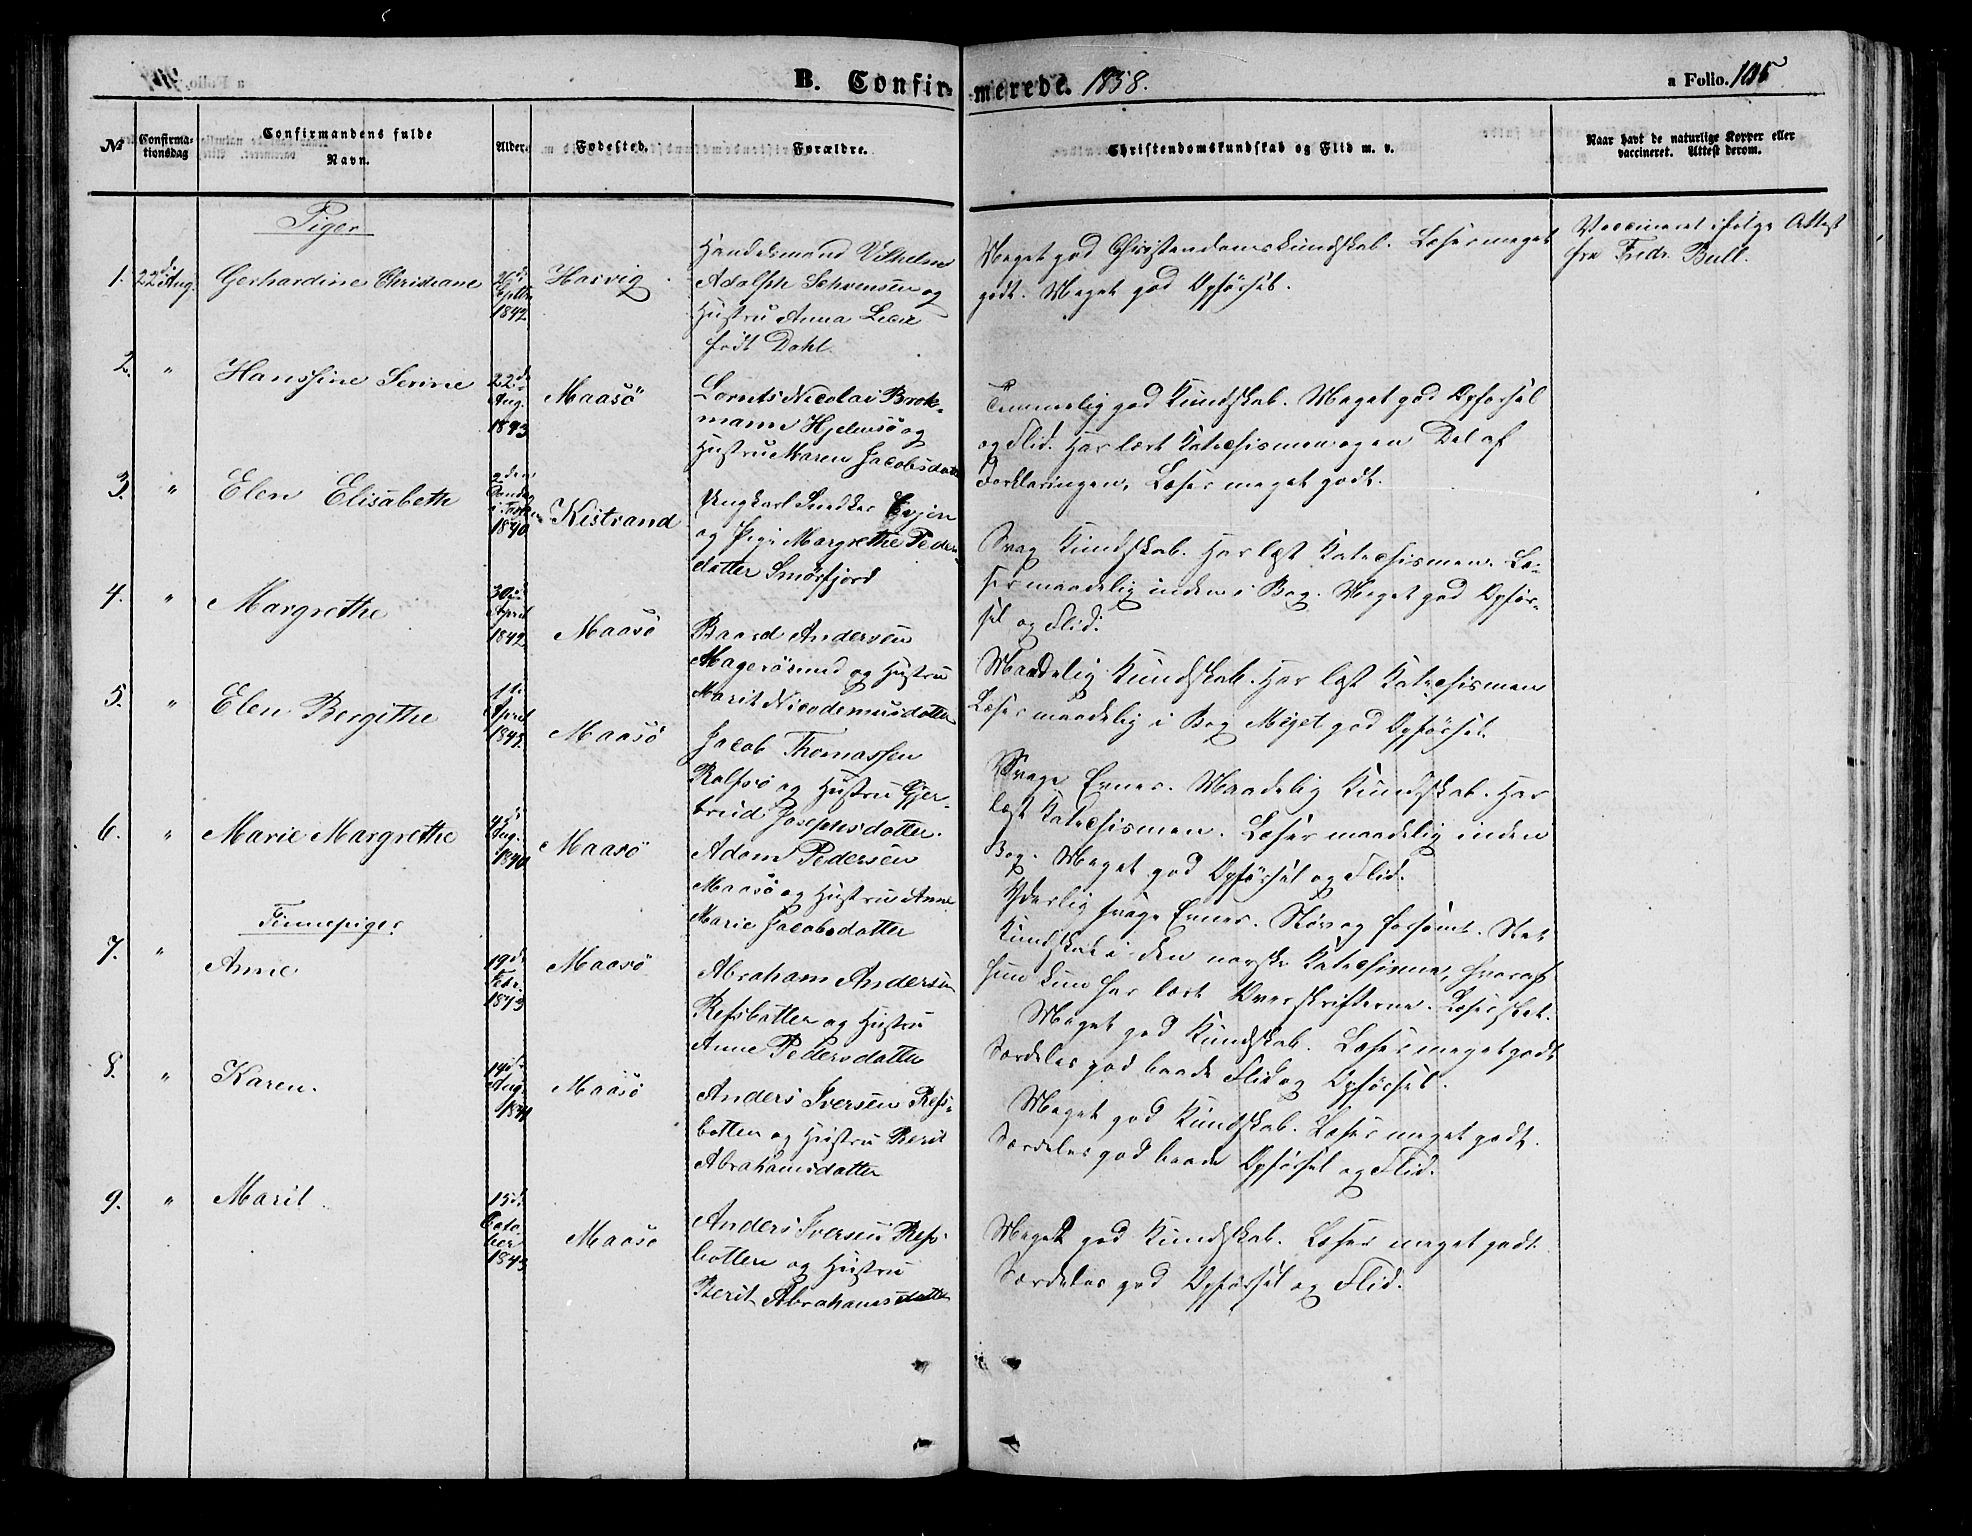 B. Confirmerede. 1858.
a Folio. 105
No
Confirmationsdag
Confirmandens fulde Navn.
Alder.
Fødested.
Forældre.
Christendomskundskab og Flid m. v.
Naar havt de naturlige Kopper eller vaccineret. Attest derom.
Piger
1. 22d Aug. Gerhardine Christiane
26de Septbr 1842
Hasvig
Handelsmand Vilhelm
Adolph Schwensen og
Hustru Anna
født Dahl
Meget god Christendomskundskab. Læser meget
godt. Meget god Opførsel.
Vaccineret ifølge Attest
fra Fredr. Bull.
2. " Hansine Serine
22de Aug. 1843
Maasö
Lorents Nicolai Brok-
mann Hjelmsö og
Hustru Maren Jacobsdatter
Temmelig god Kundskab. Meget god Opførsel
og Flid. Har lært Katechismen og en Del af
Forklaringen. Læser meget godt.
3. " Elen Elisabeth
2den Søndag i Fasten 1840
Kistrand
Ungkarl Snedker Evjen
og Pige Margrethe Peder-
datter Smørfjord
Svag Kundskab. Har læst Katechismen. Læ-
ser maadelig inden i Bog. Meget god Opför-
sel og Flid.
4. " Margrethe
30te April 1842
Maasö
Baard Andersen
Magerösund og Hustru
Marit Nicodemusdatter
Maadelig Kundskab. Har læst Katechismen
Læser maadelig i Bog. Meget god Opførsel.
5. " Elen Bergithe
11te April 1842
Maasö
Jacob Thomassen
Rolfsö og Hustru Gjer-
trud Josephsdatter.
Svage Evner. Maadelig Kundskab. Har
læst Katechismen. Læser maadelig inden
Bog. Meget god Opførsel og Flid.
6. " Marie Margrethe
Aug. 1840
Maasö
Adam Pedersen
Maasö og Hustru Anne
Marie Jacobsdatter
Yderlig svage Evner. Sløv og forsömt. Slet
Kundskab i den norske Katechisme, hvoraf
hun kun har lært Overskrifterne. Læser slet.
Finnepiger
7. " Anne
19de Febr. 1843
Maasö
Abraham Andersen
Refsbotten og Hustru
Anne Pedersdatter
Meget god Kundskab. Læser meget godt
Særdeles god baade Flid og Opførsel.
8. " Karen.
14de Aug. 1841
Maasö
Anders Iversen Refs-
botten og Hustru Berit
Abrahamsdatter
Meget god Kundskab. Læser meget godt.
Særdeles god baade Opførsel og Flid.
9. " Marit
15de October 1843
Maasö
Anders Iversen Refs-
botten og Hustru
Berit Abrahamsdatter
Meget god Kundskab. Læser meget godt.
Særdeles god Opførsel og Flid.